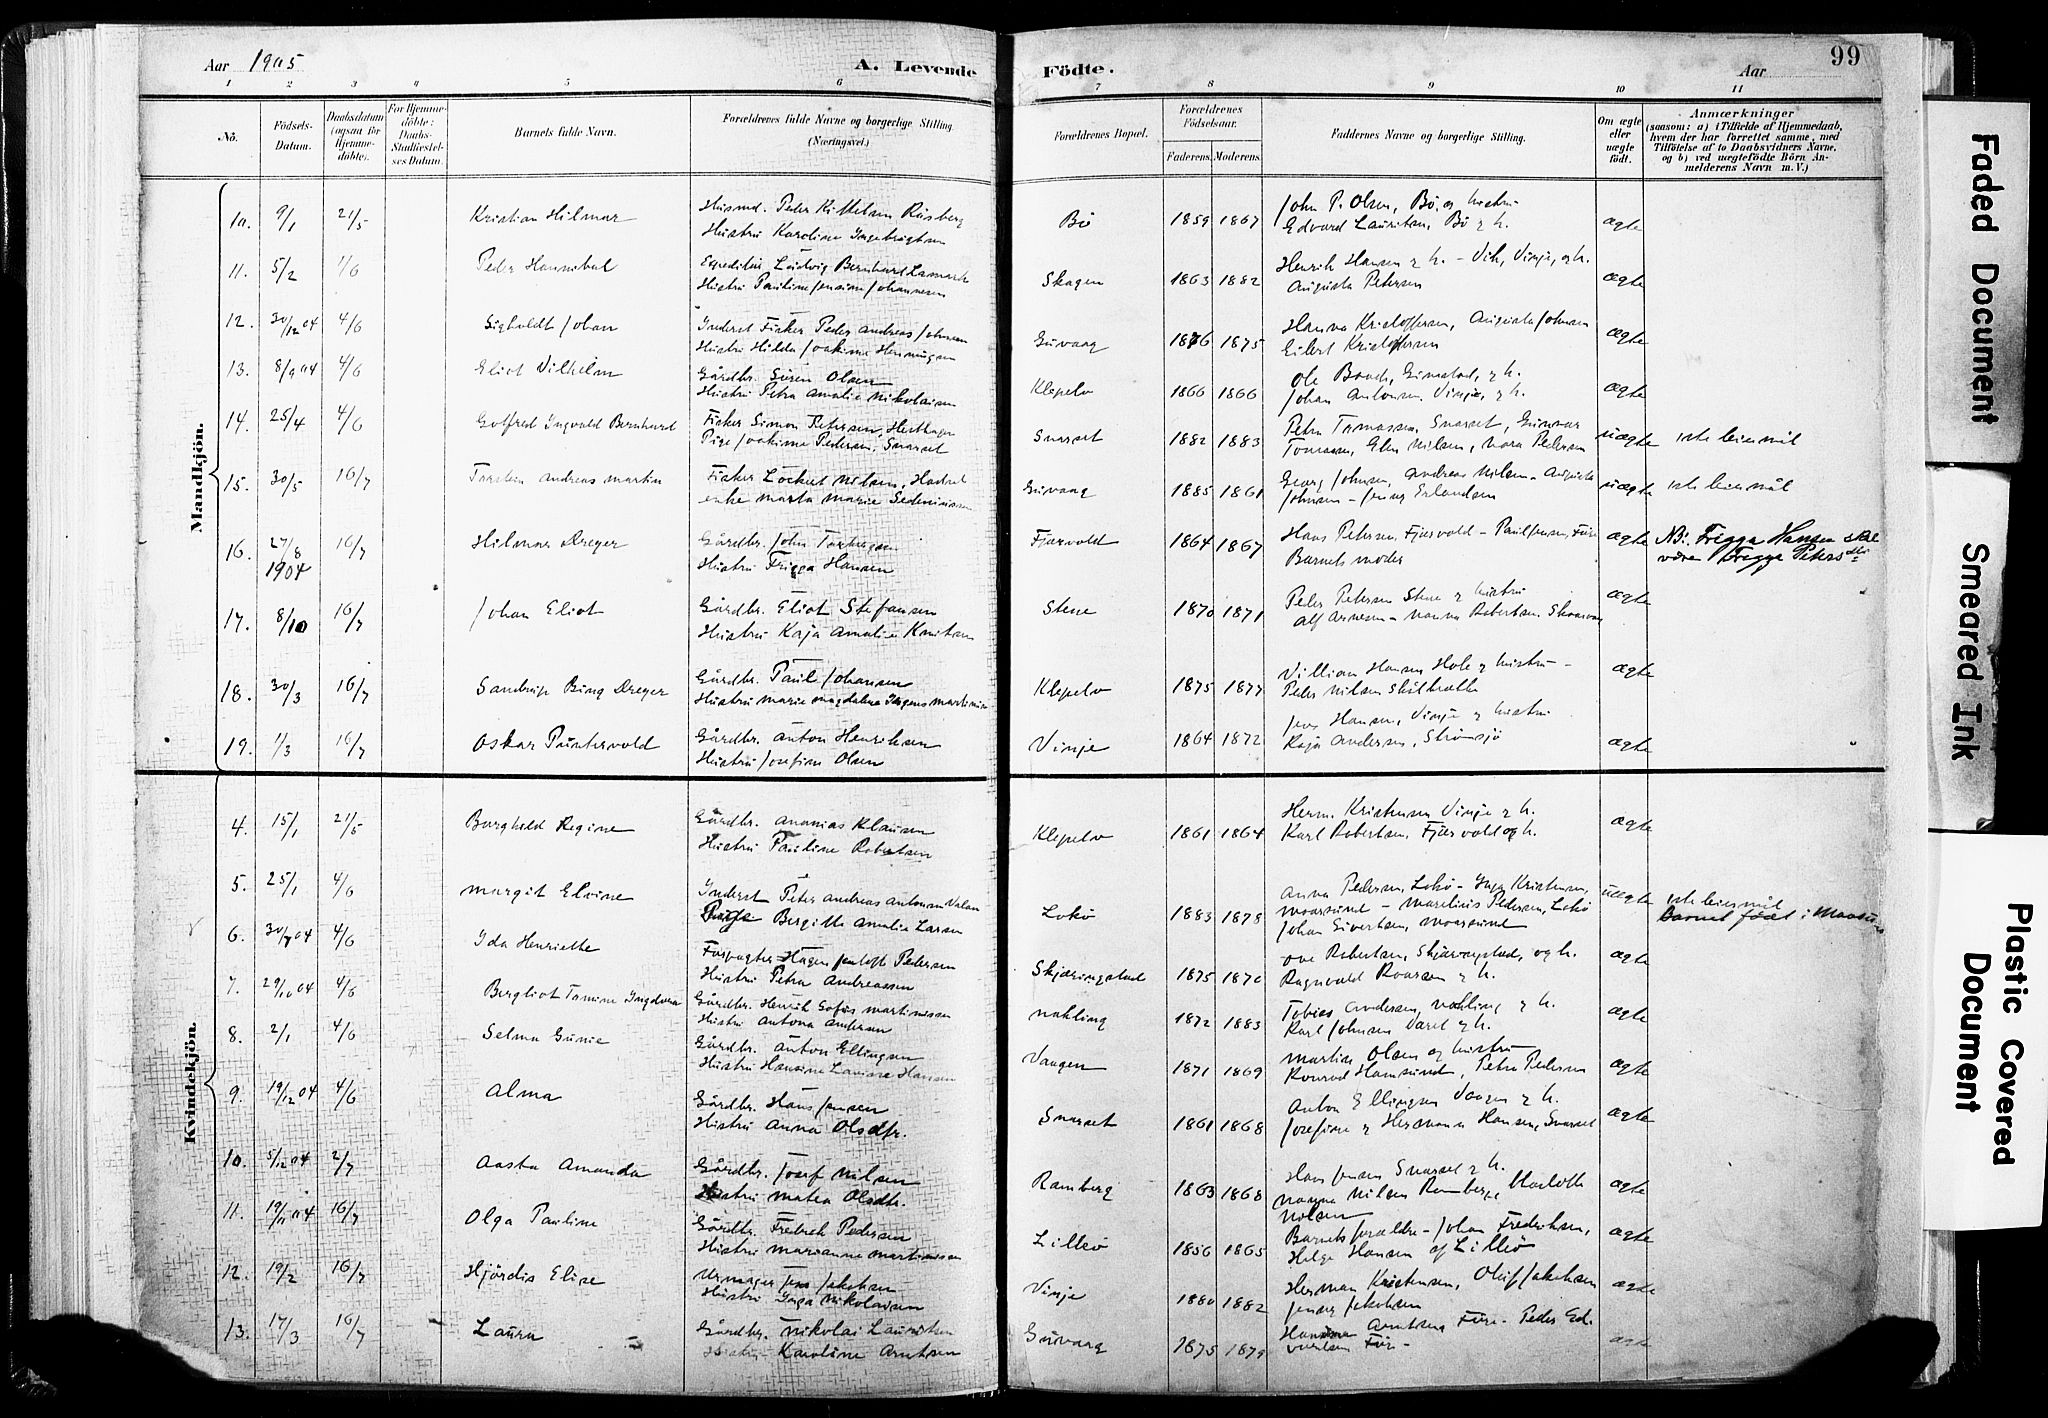 Aar 1905 A. Levende Födte. Aar 99
1 2 3 4 5 6 7 8 9 10 11
No. Födsels-Datum. Daabsdatum (ogsaa for Hjemme-döbte). For Hjemme-döbte: Daabs-Stadfæstel-ses Datum. Barnets fulde Navn. Forældrenes fulde Navne og borgerlige Stilling. (Næringsvei.) Forældrenes Bopæl. Forældrenes Födselsaar. Faderens Moderens Faddernes Navne og borgerlige Stilling. Om ægte eller uægte födt. Anmærkninger (saasom: a) i Tilfælde af Hjemmedaab, hvem der har forrettet samme, med Tilföielse af to Daabsvidners Navne, og b) ved uægtefödte Börn An-melderens Navn m. V.)
Mandkjön.
10. 9/1 21/5 Kristian Hilmar Husmd. Peder Kittelsen Risberg Bö 1859 1867 John P. Olsen, Bö, og hustru ægte
Hustru Karoline Ingebrigtsen Edvard Lauritsen, Bö & h.
11. 5/2 1/6 Peder Hannibal Expeditör Ludvig Bernhard Lamark Skagen 1863 1882 Henrik Hansen & h. - Vik, Vinje, og h. ægte
Hustru Pauline Jensine Johannesen Augusta Petersen
12. 30/12 04 4/6 Sigholdt Johan Inderst Fisker Peder Andreas Johnsen Guvaag 1876 1875 Hanna Kristoffersen, Augusta Johnsen ægte
Hustru Hilda Joakime Henningsen Eilert Kristoffersen
13. 8/9 04 4/6 Eliot Vilhelm Gårdbr. Sören Olsen Klepelv 1866 1866 Ole Benth. Grimstad, & h. ægte
Hustru Petra Amalie Nikolaisen Johan Antonsen Vinje, & h.
14. 25/4 4/6 Gotfred Ingvald Bernhard Fisker Simon Petersen, Snarset 1882 1883 Petra Tomassen, Snarset, Gunnar uægte 1ste leiermål
Pige Joakime Pedersen, Snarset Tomassen, Elen Nilsen, Nora Pedersen
15. 30/5 16/7 Torstein Andreas Martin Fisker Lockert Nilsen, Hadsel Guvaag 1885 1861 Georg Johnsen, Andreas Nilsen - Augusta uægte 1ste leiermål
enke Marta Marie Johnsen - Jenny Erlandsen
16. 27/8 1904 16/7 Hilmar Dreyer Gårdbr. John Torbergsen Fjærvold 1864 1867 Hans Petersen, Fjærvold - Paul Jensen, Före ægte NB. Frigga Hansen skal
Hustru Frigga Hansen Barnets moder være Frigga Petersdtr
17. 8/10 16/7 Johan Eliot Gårdbr. Eliot Stefansen Stene 1870 1871 Peder Petersen Stene & hustru ægte
Hustru Kaja Amalie Knutsen Alf Arnesen - Nanna Robertsen, Skaarvag
18. 30/3 16/7 Sandrup Bing Dreyer Gårdbr. Paul Johansen Klepelv 1875 1877 Villiam Hansen Hole & hustru - ægte
Hustru Marie Magdalene Peder Nilsen
19. 1/3 16/7 Oskar Puntervold Gårdbr. Anton Henriksen Vinje 1864 1872 Jens Hansen, Vinje & hustru ægte
Hustru Josefine Olsen Kaja Andersen, Strömsjö
Kvindekjön.
4. 15/1 21/5 Borghild Regine Gårdbr. Ananias Klausen Klepelv 1861 1864 Herm. Kristensen Vinje & h. ægte
Hustru Pauline Robertsen Karl Robertsen, Fjærvoll og h.
5. 25/1 4/6 Margit Elvine Inderst Peter Andreas Antonsen Lokö 1883 1878 Anna Pedersen, Lokö - Inga Kristensen, uægte 1ste leiermål
Pige Bergitte Amalie Larsen Maarsund - Marelius Pedersen, Lokö Barnet födt i
Johan Sivertsen, Maarsund
6. 30/7 04 4/6 Ida Henriette Forpagter Hagen Pedersen Skjæringstad 1875 1870 Ove Robertsen, Skjæringstad, og h. ægte
Hustru Petra Andreassen Ragnvald Roarsen & h.
7. 29/10 04 4/6 Bergliot Tomine Ingdora Gårdbr. Henrik Gofus Martinussen Nakling 1872 1883 Tobias Andersen, Nakling & h. ægte
Hustru Antona Andersen Karl Johnsen Varet & h.
8. 2/1 4/6 Selma Gunie Gårdbr. Anton Ellingsen Vaagen 1871 1869 Martin Olsen og hustru ægte
Hustru Hansine Lavisse Hansen Konrad Hamsund, Petra Pedersen
9. 19/12 04 4/6 Alma Gårdbr. Hans Jensen Snarset 1861 1868 Anton Ellingsen Vaagen & h. ægte
Hustru Anna Olsdtr. Josefine & Hermann Hansen, Snarset
10. 5/12 04 2/7 Aasta Amanda Gårdbr. Josef Nilsen Ramberg 1863 1868 Hans Jensen Snarset & h. ægte
Hustru Matea Olsdtr. Nanna Nilsen Ramberg, Harlotte
Nilsen
11. 19/11 04 16/7 Olga Pauline Gårdbr. Fredrik Pedersen Lilleö 1856 1865 Barnets forældre - Johan Fredriksen, ægte
Hustru Marianne Martinussen Helge Hansen af Lilleö
12. 19/2 16/7 Hjördis Elise Urmager Jens Jakobsen Vinje 1880 1882 Herman Kristensen, Oluf Jakobsen ægte
Hustru Inga Nikolaisen Jenny Jakobsen
13. 17/3 16/7 Laura Gårdbr. Nikolai Lauritsen Guvaag 1875 1879 Arntsen Före - Peder Ed. ægte
Hustru Karoline Arntsen Före -
Faded Document
Smeared Ink
Plastic Covered Document